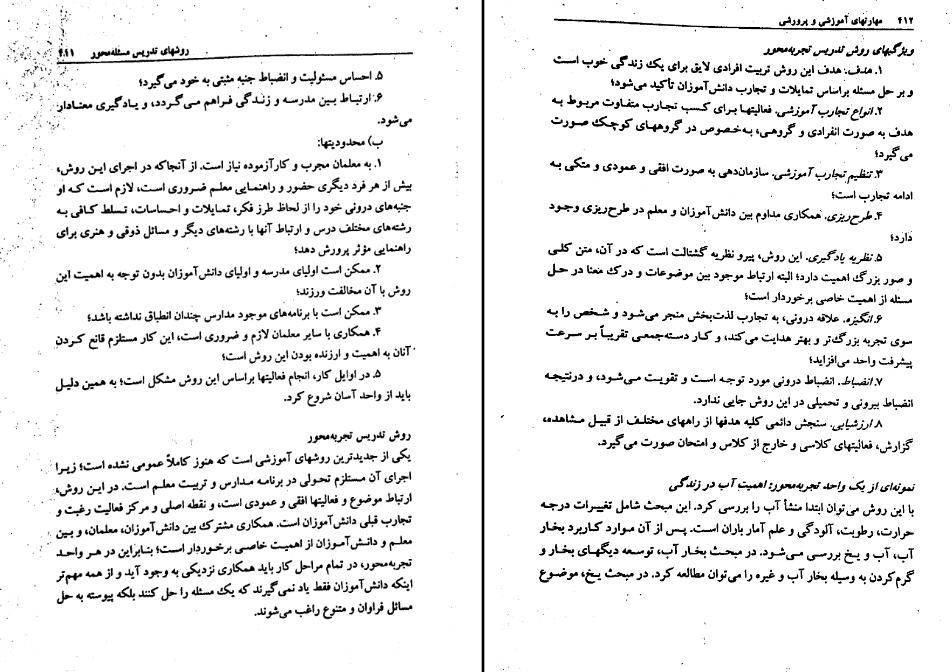 ۴۱۱ روشهای تدریس مسئله‌محور
۵. احساس مسئولیت و انضباط جنبه مثبتی به خود می‌گیرد؛
۶. ارتباط بین مدرسه و زندگی فراهم می‌گردد، و یادگیری معنادار
می‌شود.
ب) محدودیتها:
۱. به معلمان مجرب و کارآزموده نیاز است. از آنجاکه در اجرای این روش،
بیش از هر فرد دیگری حضور و راهنمایی معلم ضروری است، لازم است که او
جنبه‌های درونی خود را از لحاظ طرز فکر، تمایلات و احساسات، تسلط کافی به
رشته‌های مختلف درس و ارتباط آنها با رشته‌های دیگر و مسائل ذوقی و هنری برای
راهنمایی مؤثر پرورش دهد؛
۲. ممکن است اولیای مدرسه و اولیای دانش‌آموزان بدون توجه به اهمیت این
روش با آن مخالفت ورزند؛
۳. ممکن است با برنامه‌های موجود مدارس چندان انطباق نداشته باشد؛
۴. همکاری با سایر معلمان لازم و ضروری است، این کار مستلزم قانع کردن
آنان به اهمیت و ارزنده بودن این روش است؛
۵. در اوایل کار، انجام فعالیتها براساس این روش مشکل است؛ به همین دلیل
باید از واحد آسان شروع کرد.
روش تدریس تجربه‌محور
یکی از جدیدترین روشهای آموزشی است که هنوز کاملاً عمومی نشده است؛ زیرا
اجرای آن مستلزم تحولی در برنامه مدارس و تربیت معلم است. در این روش،
ارتباط موضوع و فعالیتها افقی و عمودی است، و نقطه اصلی و مرکز فعالیت رغبت و
تجارب قبلی دانش‌آموزان است. همکاری مشترک بین دانش‌آموزان، معلمان، و بین
معلم و دانش‌آموزان از اهمیت خاصی برخوردار است؛ بنابراین در هر واحد
تجربه‌محور، در تمام مراحل کار باید همکاری نزدیکی به وجود آید و از همه مهم‌تر
اینکه دانش‌آموزان فقط یاد نمی‌گیرند که یک مسئله را حل کنند بلکه پیوسته به حل
مسائل فراوان و متنوع راغب می‌شوند.
۴۱۲ مهارتهای آموزشی و پرورشی
ویژگیهای روش تدریس تجربه‌محور
۱. هدف. هدف این روش تربیت افرادی لایق برای یک زندگی خوب است
و بر حل مسئله براساس تمایلات و تجارب دانش‌آموزان تأکید می‌شود؛
۲. انواع تجارب آموزشی. فعالیتها برای کسب تجارب متفاوت مربوط به
هدف به صورت انفرادی و گروهی، به‌خصوص در گروههای کوچک صورت
می‌گیرد؛
۳. تنظیم تجارب آموزشی. سازمان‌دهی به صورت افقی و عمودی و متکی به
ادامه تجارب است؛
۴. طرح‌ریزی. همکاری مداوم بین دانش‌آموزان و معلم در طرح‌ریزی وجود
دارد؛
۵. نظریه یادگیری. این روش، پیرو نظریه گشتالت است که در آن، متن کلی
و صور بزرگ اهمیت دارد؛ البته ارتباط موجود بین موضوعات و درک معنا در حل
مسئله از اهمیت خاصی برخوردار است؛
۶. انگیزه. علاقه درونی، به تجارب لذت‌بخش منجر می‌شود و شخص را به
سوی تجربه بزرگ‌تر و بهتر هدایت می‌کند، و کار دسته‌جمعی تقریباً بر سرعت
پیشرفت واحد می‌افزاید؛
۷. انضباط. انضباط درونی مورد توجه است و تقویت می‌شود، و درنتیجه
انضباط بیرونی و تحمیلی در این روش جایی ندارد.
۸. ارزشیابی. سنجش دائمی کلیه هدفها از راههای مختلف از قبیل مشاهده،
گزارش، فعالیتهای کلاسی و خارج از کلاس و امتحان صورت می‌گیرد.
نمونه‌ای از یک واحد تجربه‌محور: اهمیت آب در زندگی
با این روش می‌توان ابتدا منشأ آب را بررسی کرد. این مبحث شامل تغییرات درجه
حرارت، رطوبت، آلودگی و علم آمار باران است. پس از آن موارد کاربرد بخار
آب، آب و یخ بررسی می‌شود. در مبحث بخار آب، توسعه دیگهای بخار و
گرم‌کردن به وسیله بخار آب و غیره را می‌توان مطالعه کرد. در مبحث یخ، موضوع